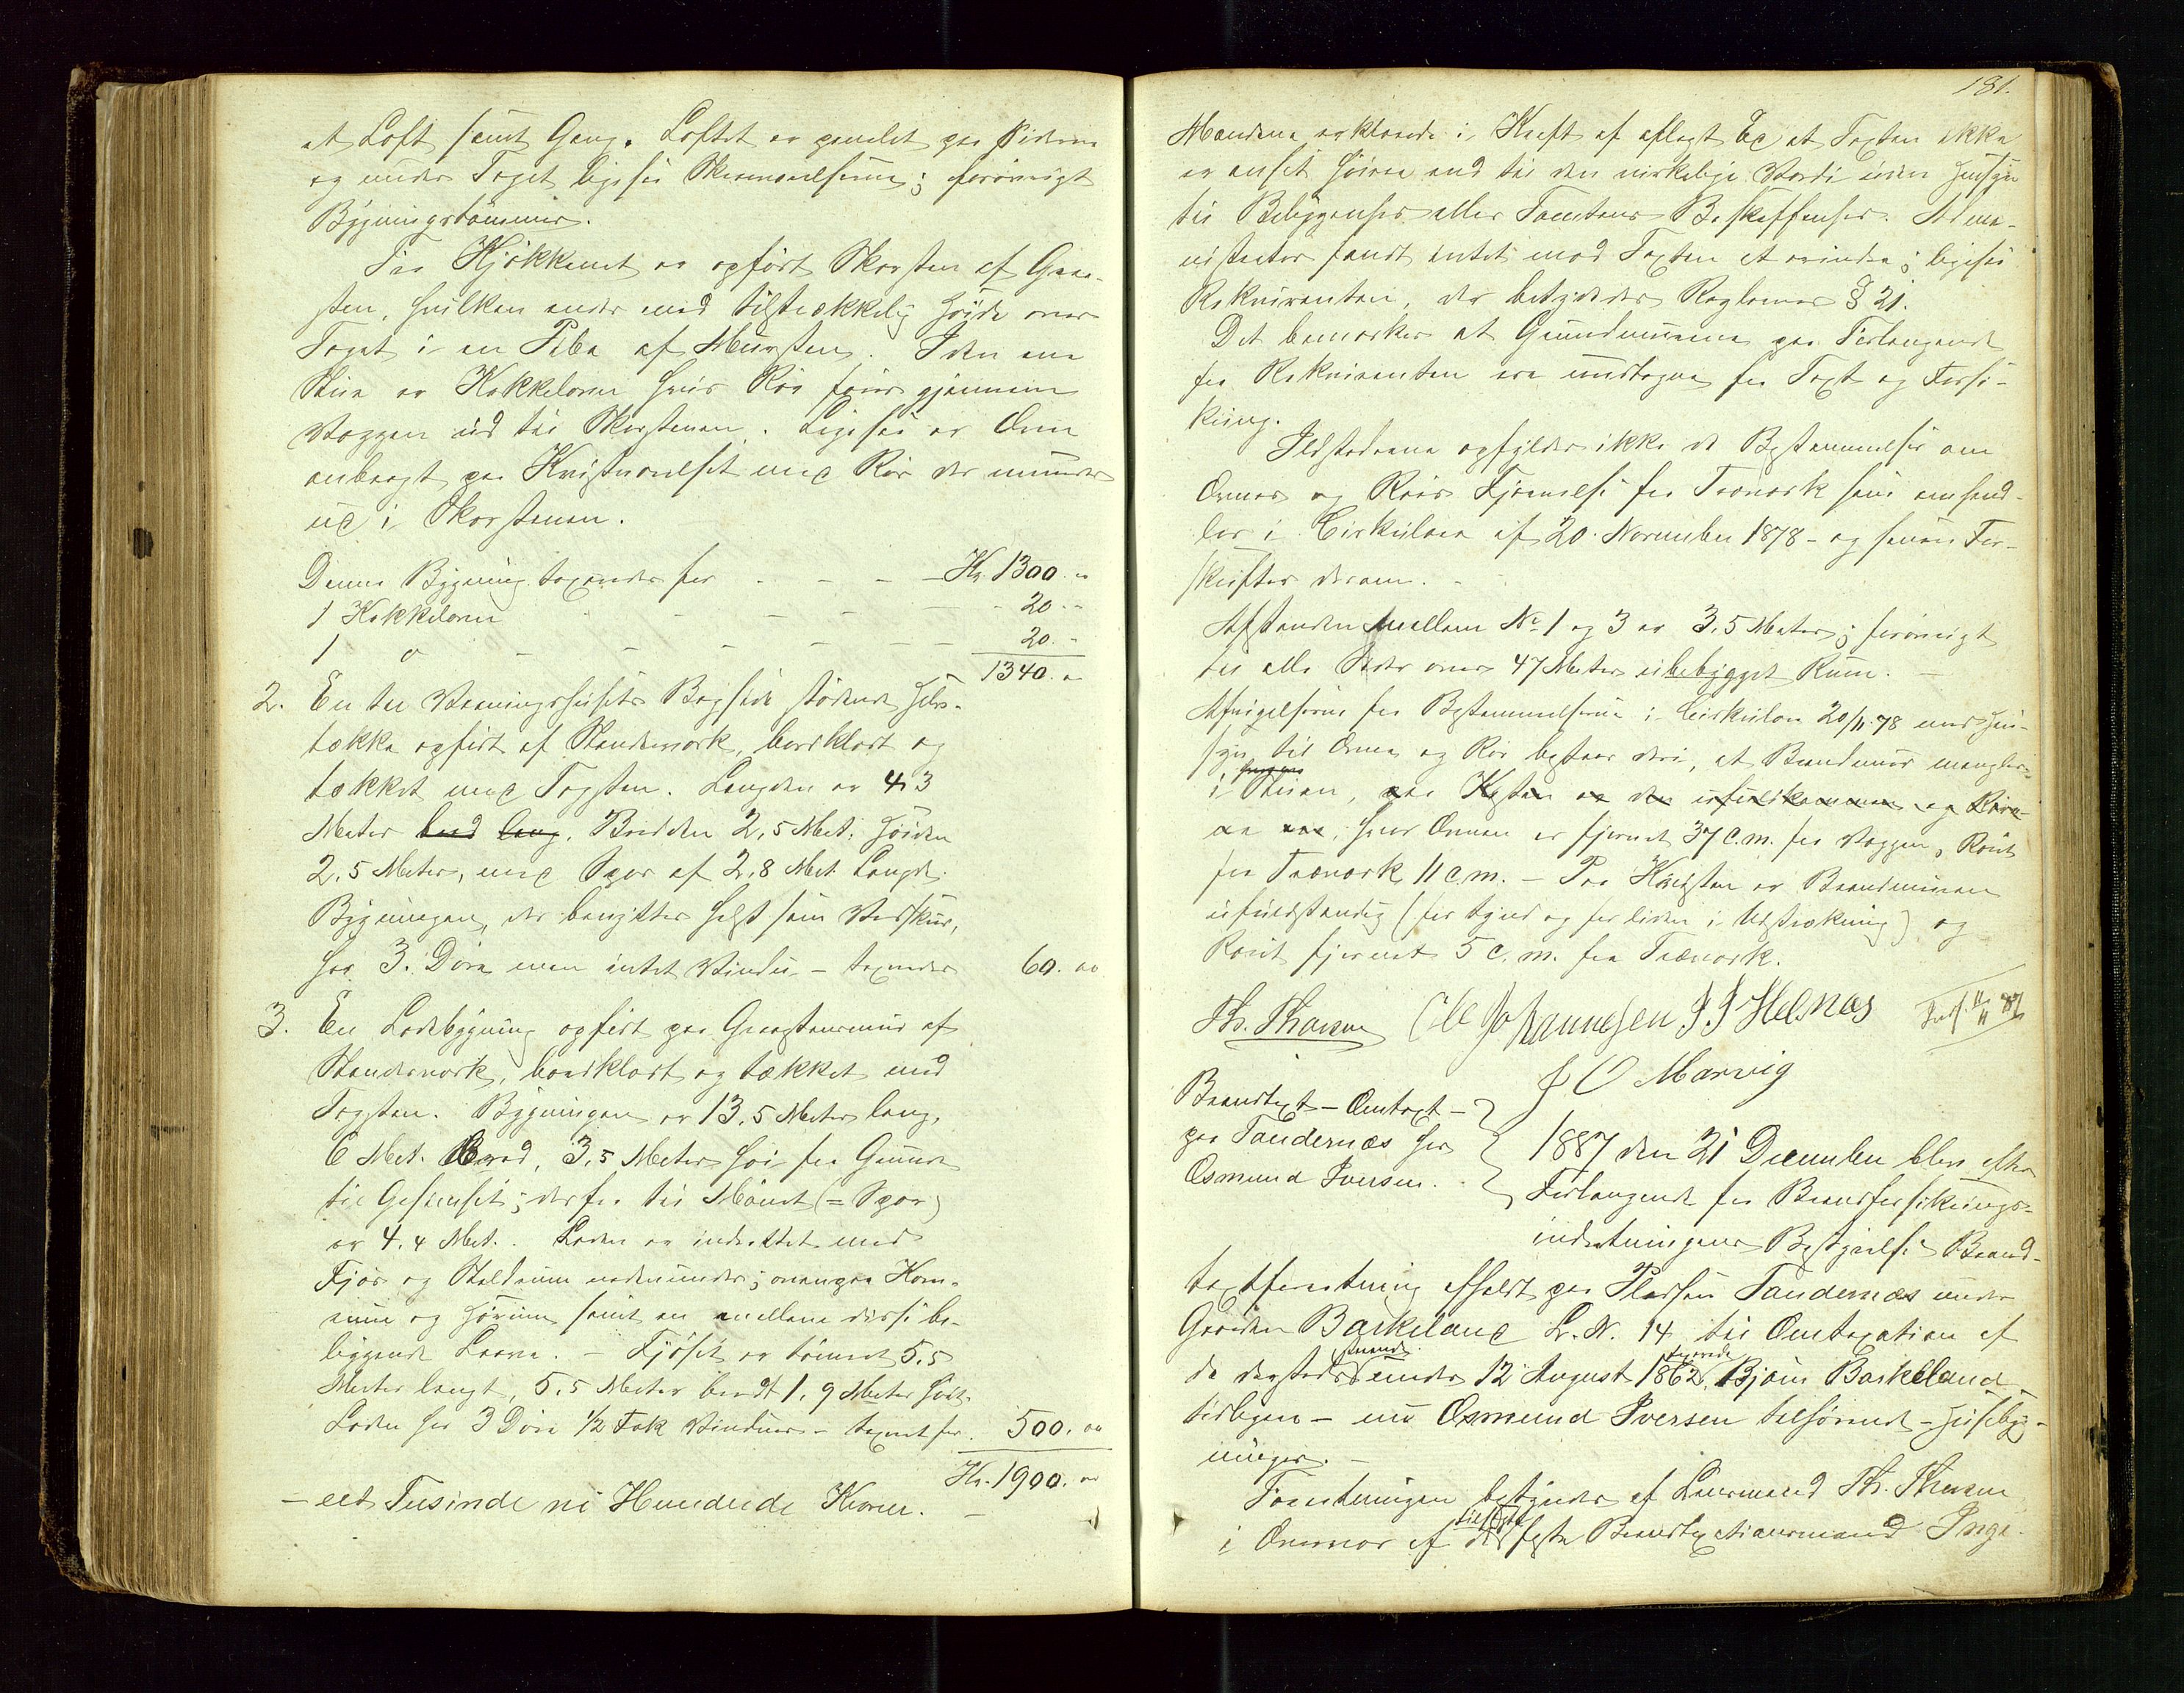 et Loft samt Gang. Loftet er panelet paa Siderne
og under Taget ligesaa Skraavælserne; forøvrigt
Bygningstømmer.
Fra Kjøkkenet er opført Skorsten af Graa-
sten, hvilken ender med tilstrækkelig Høide over
Taget i en Pibe af Mursten. I den ene
Stue er Kakkelovn hvis Rør fører gjennem
Væggen ud til Skorstenen. Ligesaa er Ovn
anbragt paa Kvistværelset med Rør der munder
ud i Skorstenen.
Denne Bygning taxeredes for - - - Kr. 1300. "
1 Kakkelovn - - - - - 20. "
1 do - - - - - 20. "
1340. "
2. En til Vaaningshusets Bagside stødende Halv-
tække opført af Standerværk, bordklædt og
tækket med Tagsten. Længden er 4,3
Meter bred lang. Bredden 2,5 Met. Høiden
2,5 Meter, med Spær af 2,8 Met. Længde.
Bygningen, der benyttes helst som Vedskur,
har 3. Døre men intet Vindu - taxeredes 60. "
3. En Ladebygning opført paa Graastensmur af
Standerværk, bordklædt og tækket med
Tagsten. Bygningen er 13,5 Meter lang,
6 Met. Bred, 3,5 Meter høi fra Grunden
til Gesimset; derfra til Mønet (= Spær)
er 4,4 Met. Laden er indrettet med
Fjøs og Staldrum nedenunder; ovenpaa Korn-
rum og Hørum samt en mellem disse be-
liggende Laave. - Fjøset er tømret 5,5
Meter langt, 5,5 Meter bredt 1,9 Meter høit.
Laden har 3 Døre 1/2 Fak Vinduer - taxeret for. 500. "
Kr. 1900. "
- eet Tusinde ni Hundrede Kroner. -
181.
Mændene erklærede i Kraft af aflagt Ed at Taxten ikke
er ansat høiere end til den virkelige Værdi uden Hensyn
til Bebyggelses eller Tomtens Beskaffenhed. Admi-
nistrator fandt intet mod Taxten at erindre; ligesaa
Rekvirenten, der betydedes Reglernes § 21.
Det bemærkes at Grundmurene paa Forlangende
fra Rekvirenten ere undtagne fra Taxt og Forsi-
kring.
Ildstederne opfylder ikke de Bestemmelser om
Ovnes og Rørs Fjernelse fra Træværk som omhand-
les i Cirkulære af 20. November 1878 - og senere For-
skrifter derom. -
Afstanden mellem No 1 og 3 er 3,5 Meter; forøvrigt
til alle Sider over 47 Meter ubebygget Rum. -
Afvigelserne fra Bestemmelserne i Cirkulære 20/11 78 med Hen-
syn til Ovne og Rør bestaar deri, at Brandmur mangler
i Stuen, paa Kvisten er den ufuldkommen og Røre-
ne, hvor Ovnen er fjernet 37 c.m. fra Væggen, Røret
fra Træværk 11 c.m. - Paa Kvisten er Brandmuren
ufuldstændig (for tynd og for liden i Udstrækning) og
Røret fjernet 5 c.m. fra Træværk.
Th. Thorsen Ole Johannesen J J Helnæs
11/11 87
J O Marvig
Brandtaxt - Omtaxt -
paa Tandernæs hos
Osmund Iversen.
1887 den 21 December blev efter
Forlangende fra Brandforsikrings-
indretningens Bestyrelse Brand-
taxtforretning afholdt paa Pladsen Tandernæs under
Gaarden Barkeland L. N. 14 til Omtaxation af
de dersteds værende under 12 August 1862 taxerede, Bjørn Barkeland
tidligere - nu Osmund Iversen tilhørende - Husebyg-
ninger. -
Forretningen bestyredes af Lensmand Th. Thorsen
i Overvær af tilsagte de faste Brandtaxationsmænd Inge-